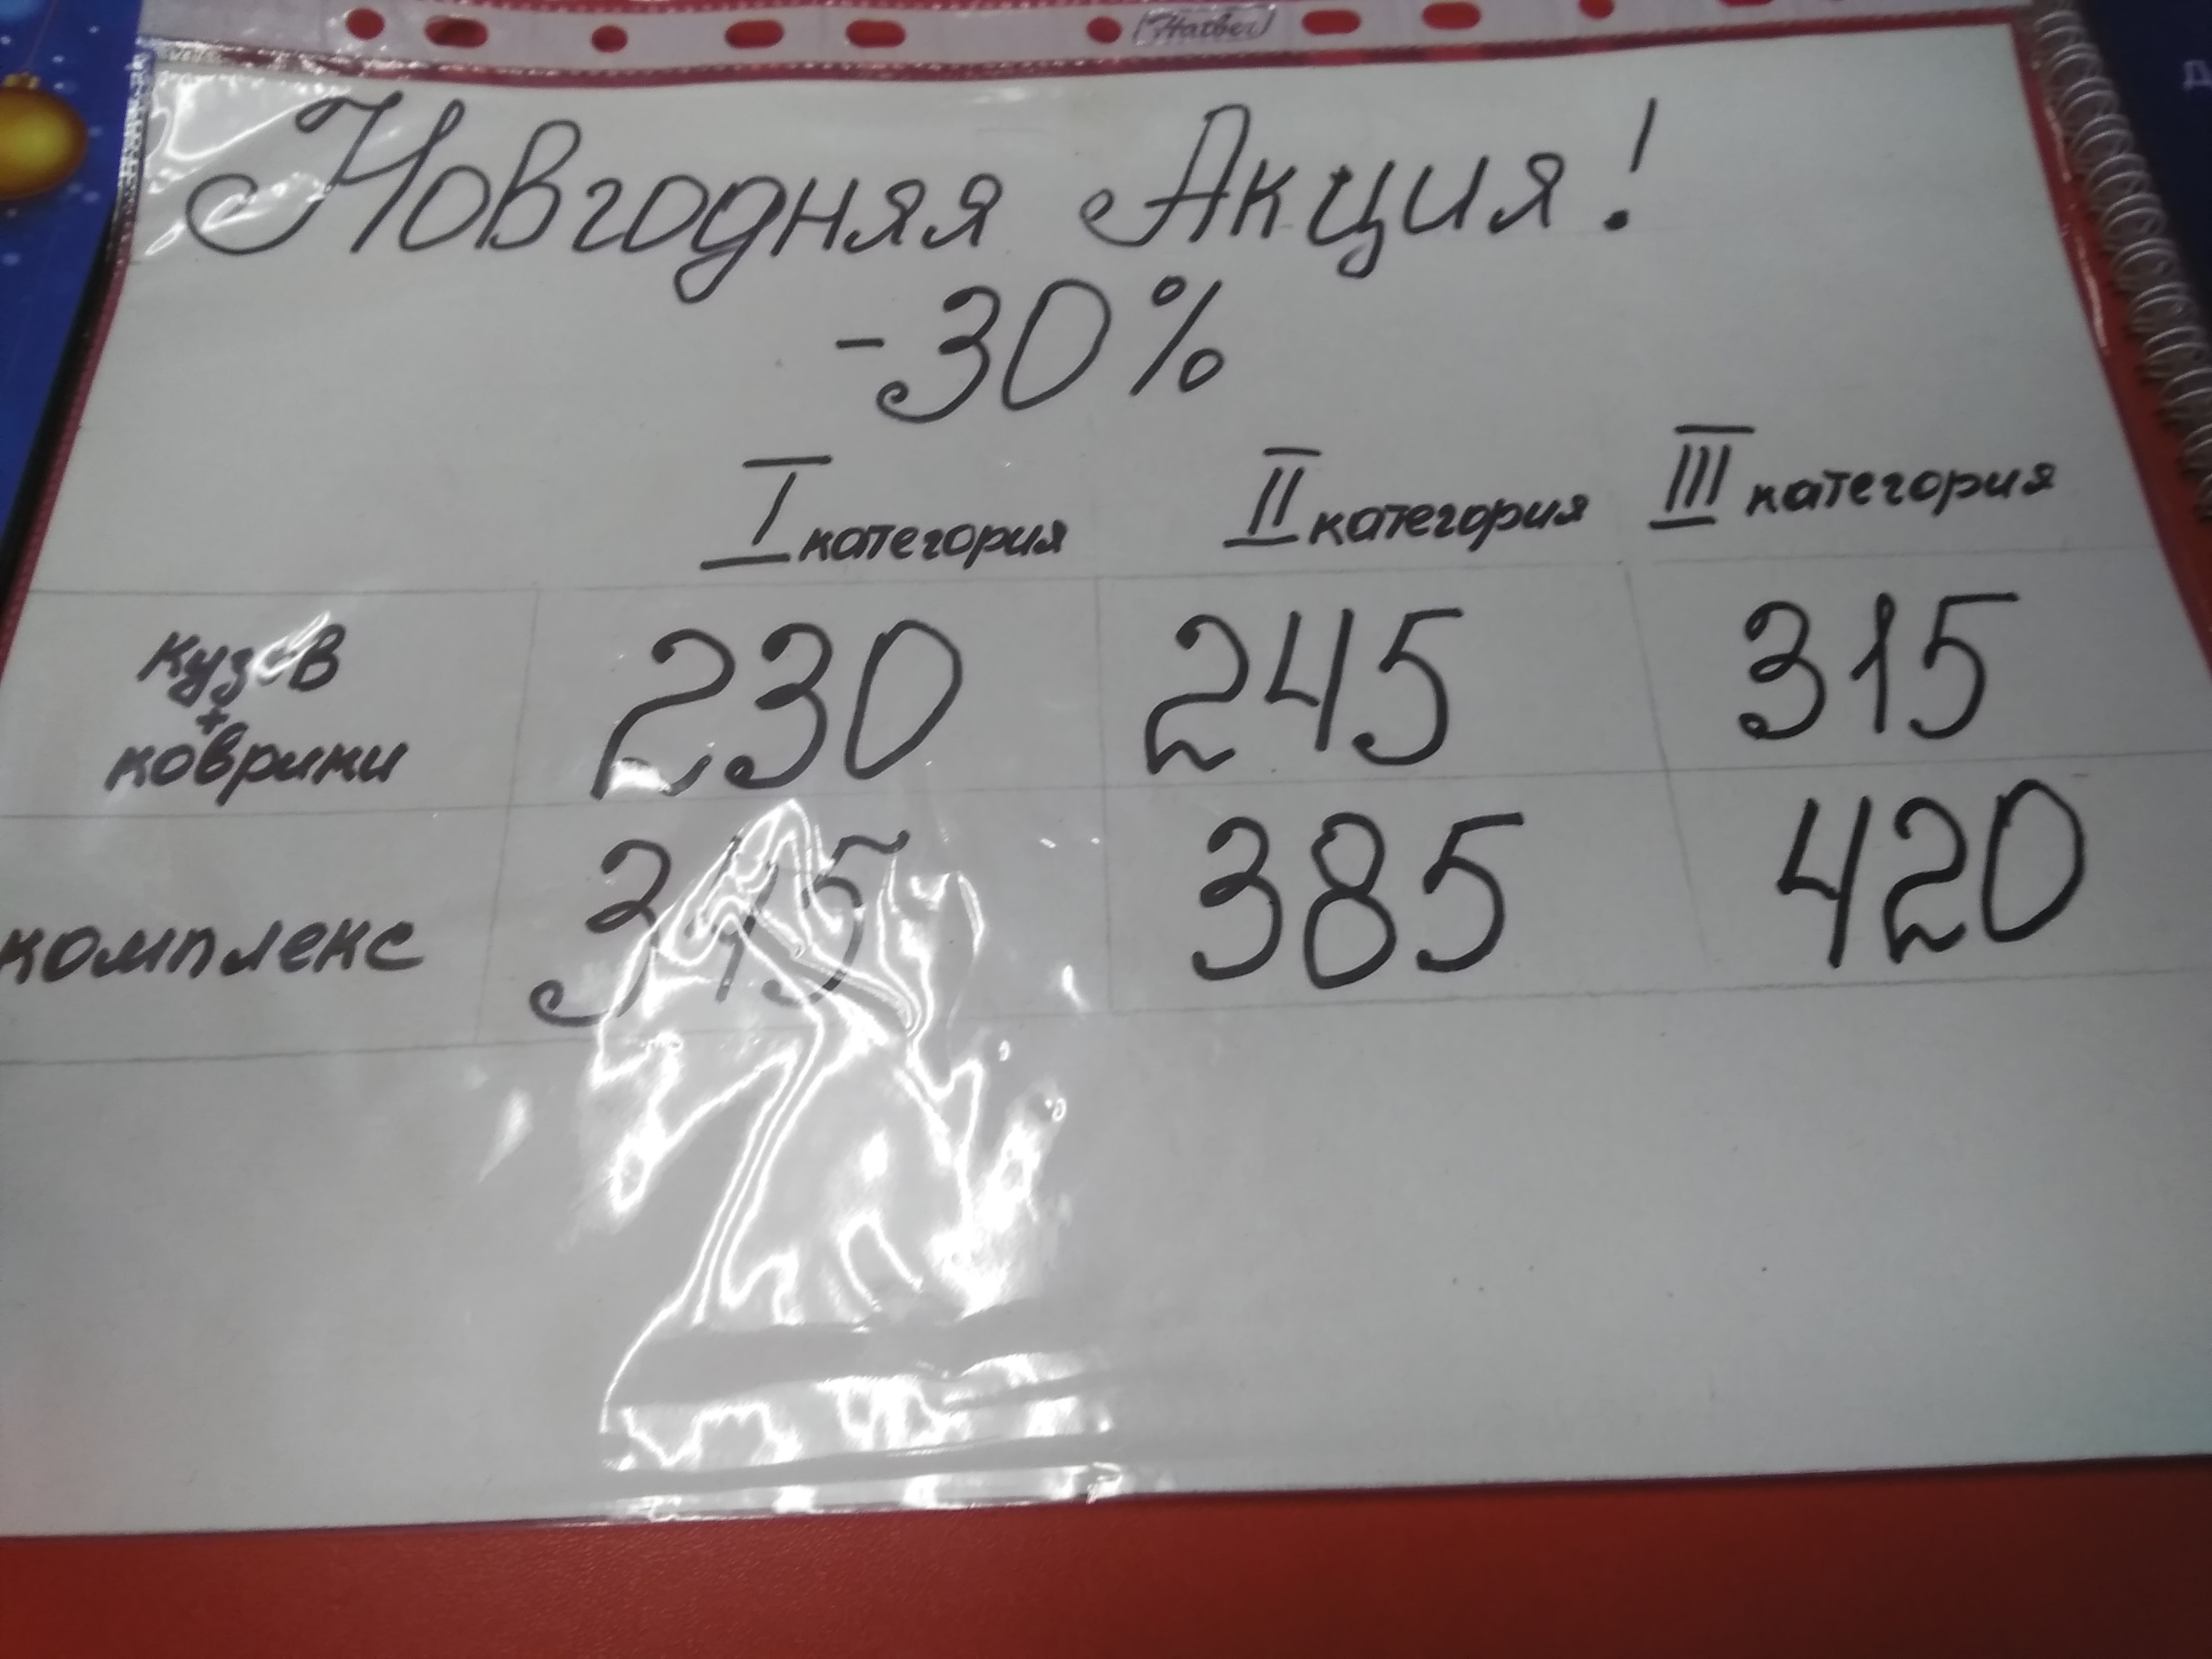 Hatber
Новгодняя Акция!
-30%
I категория II категория III категория
кузов 230 245 315
+
коврики
комплекс 345 385 420